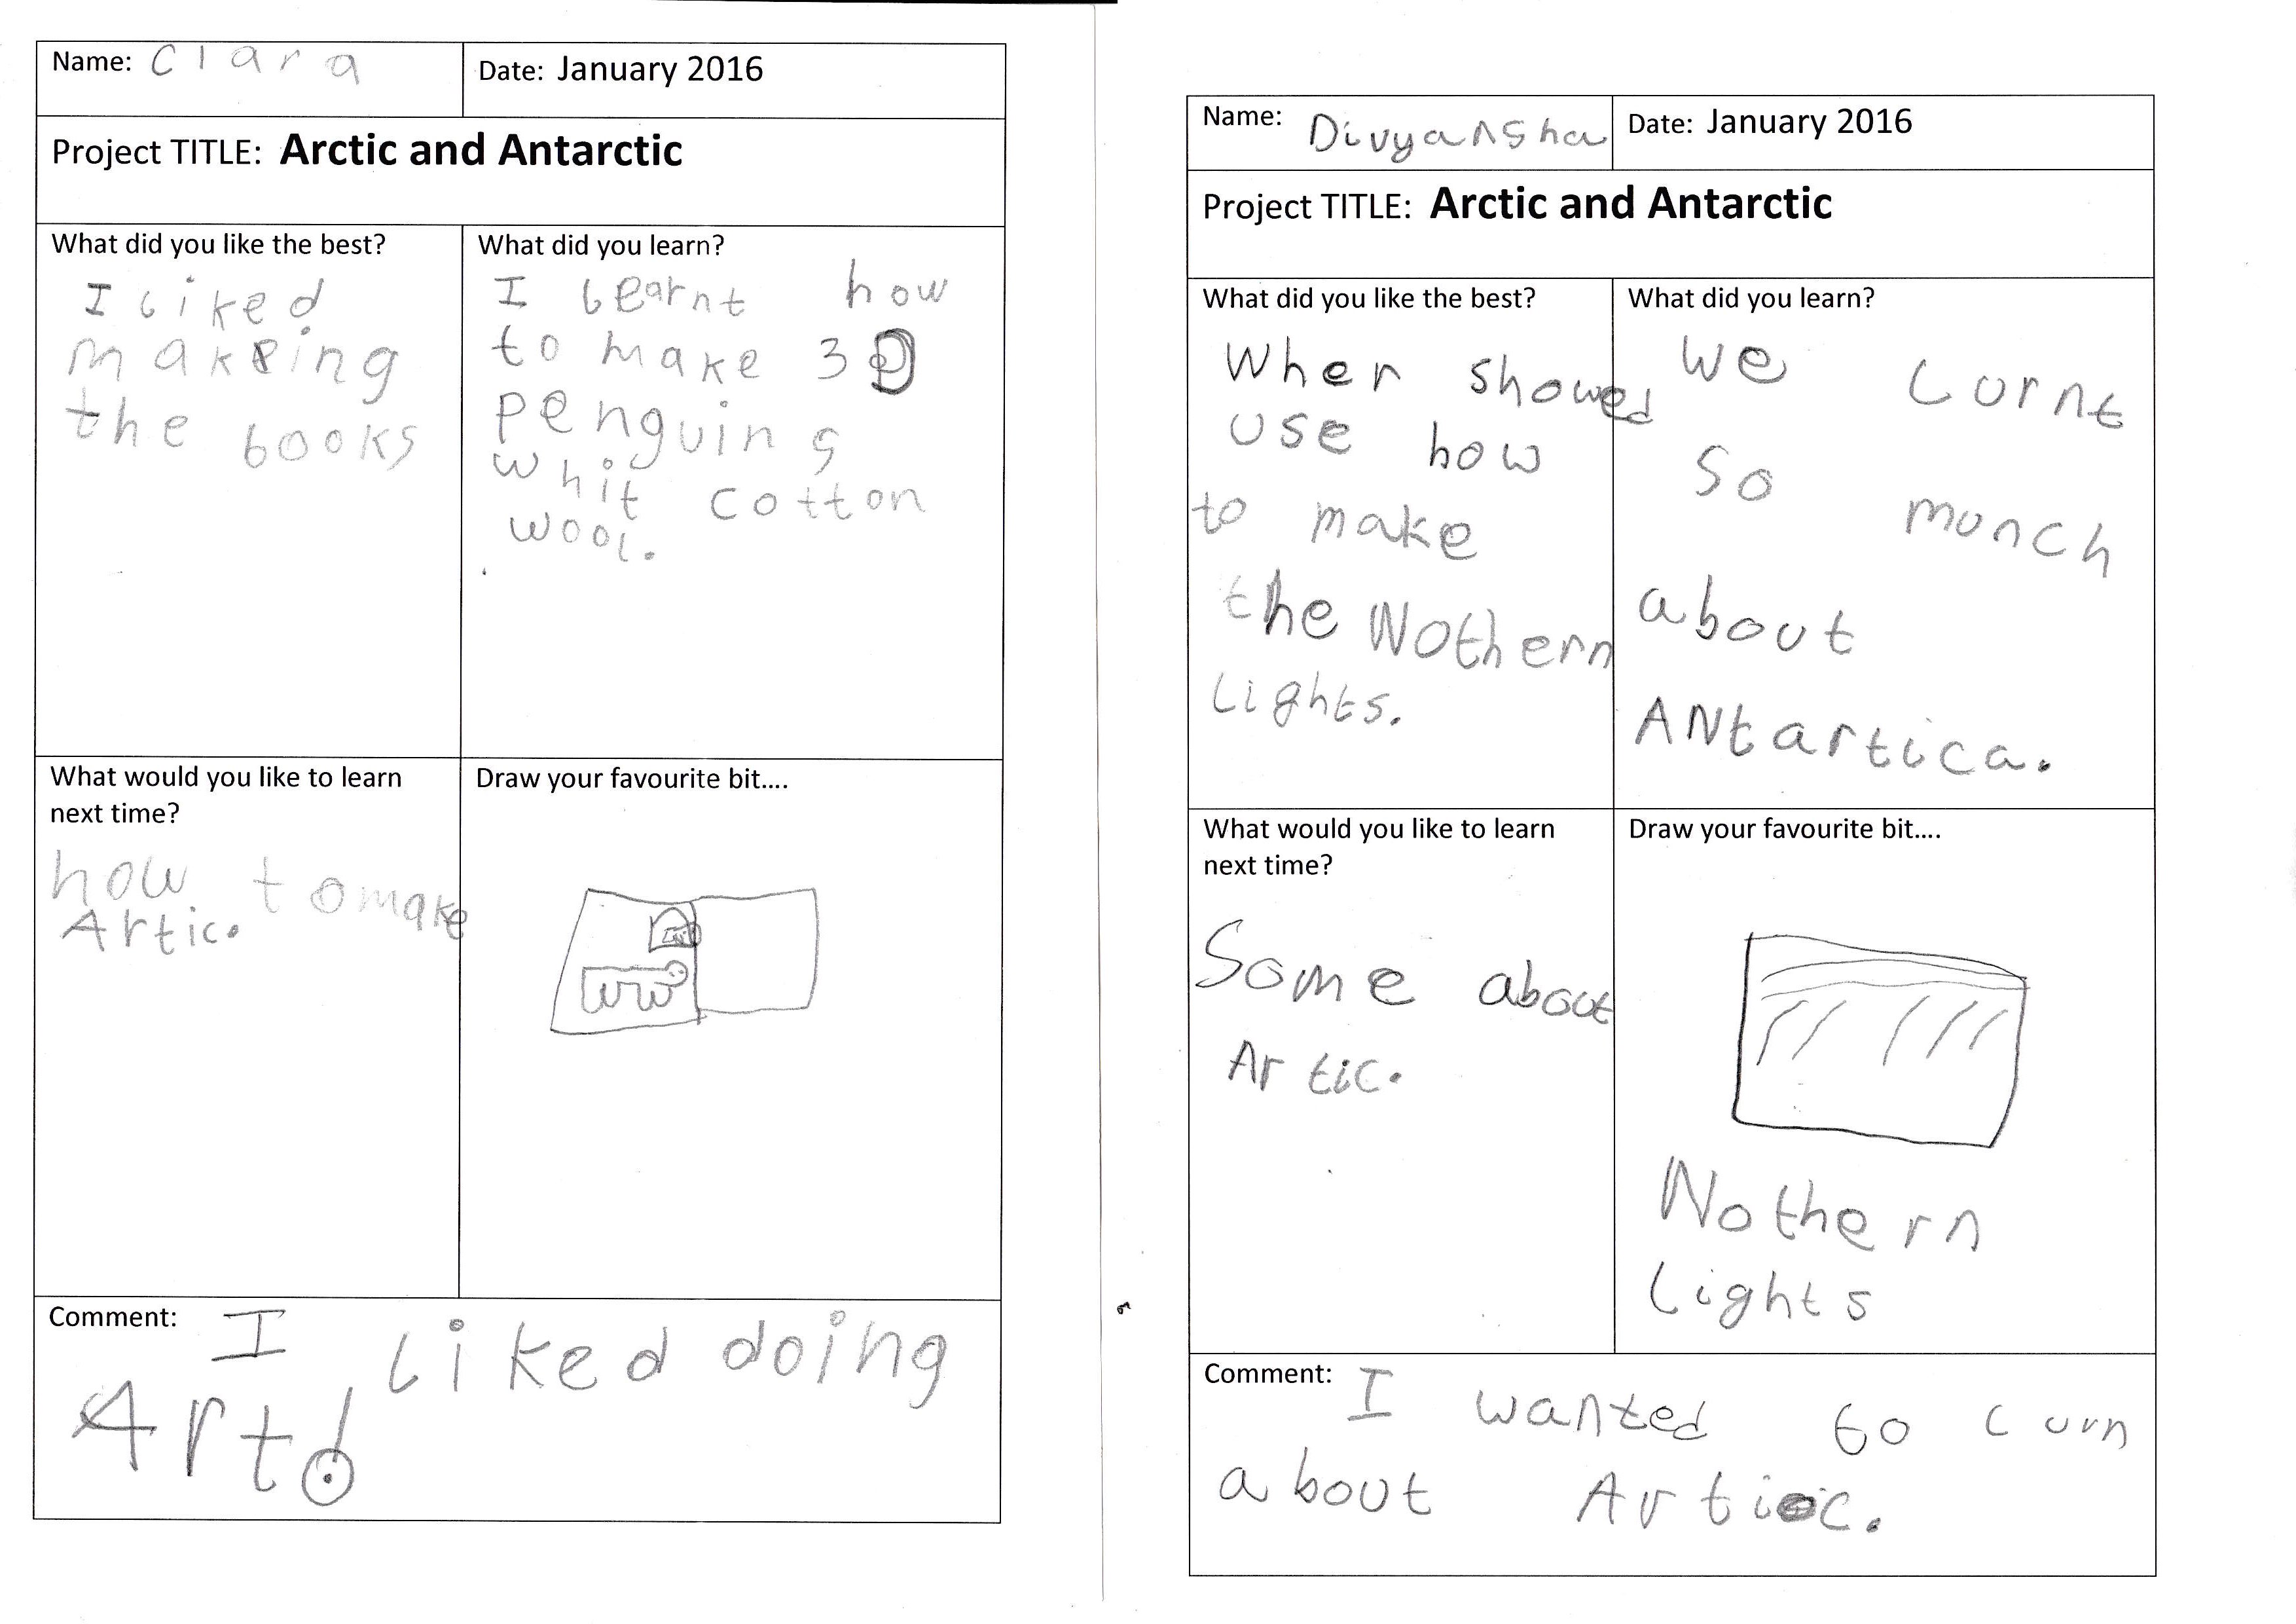 Name: Clara
Date: January 2016
Project TITLE: Arctic and Antarctic
What did you like the best?
I liked
makeing
the books
What did you learn?
I learnt how
to make 3D
penguins
whit cotton
wool.
What would you like to learn
next time?
how to make
Artic.
Draw your favourite bit....
Comment: I liked doing
Art!
Name: Divyansha
Date: January 2016
Project TITLE: Arctic and Antarctic
What did you like the best?
When showed
use how
to make
the Nothern
Lights.
What did you learn?
We lurnt
So munch
about
ANtartica.
What would you like to learn
next time?
Some about
Artic.
Draw your favourite bit....
Nothern
lights
Comment: I wanted to lurn
about Artic.